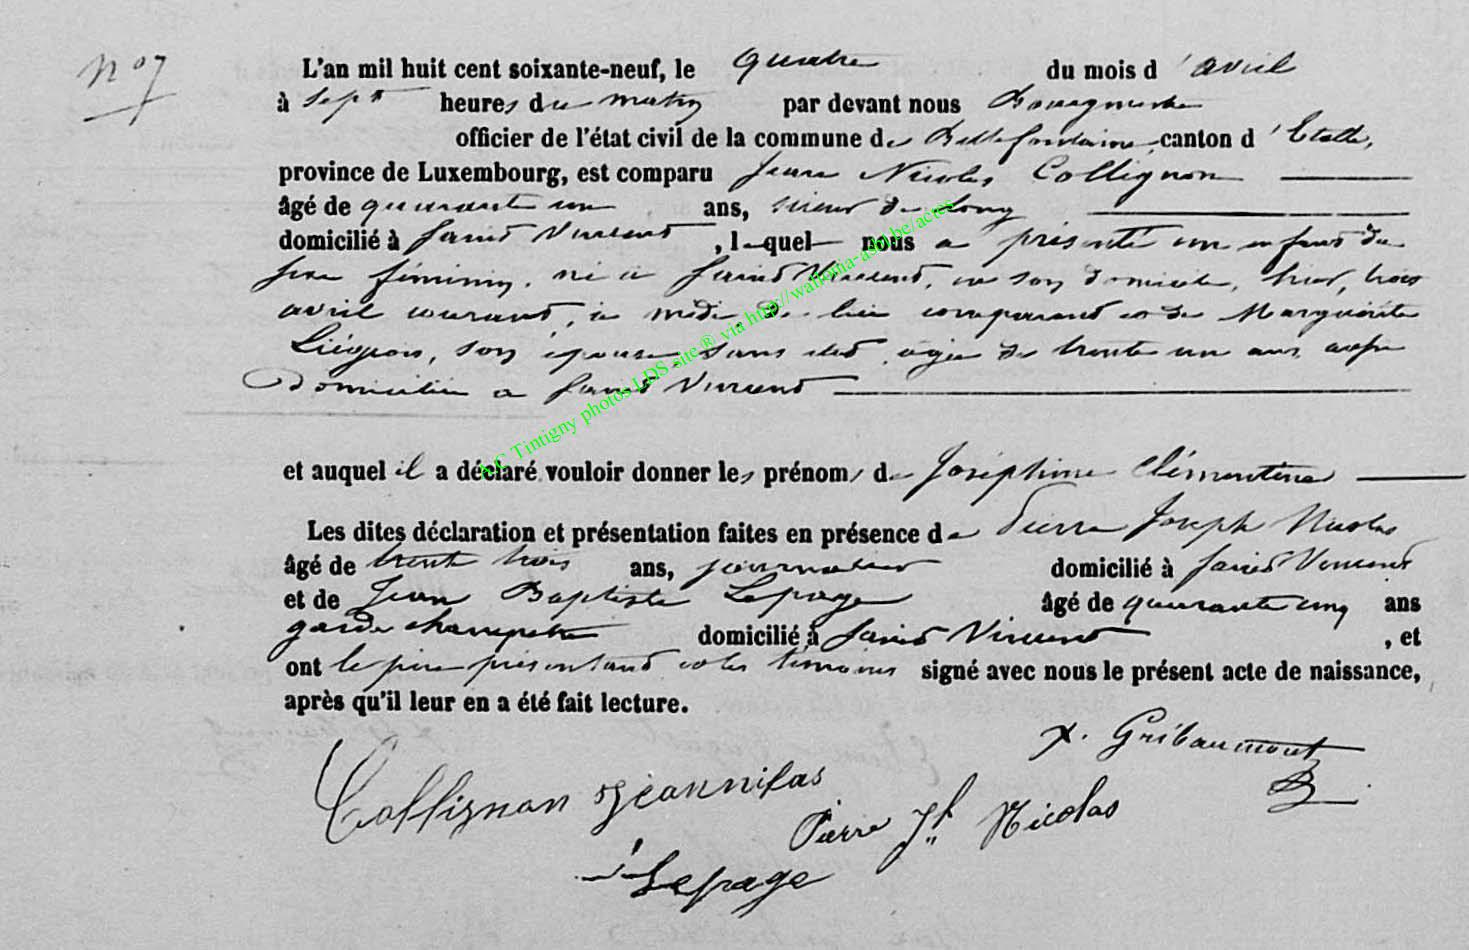 N° 7
L'an mil huit cent soixante-neuf, le quatre du mois d'avril
à sept heures du matin par devant nous Bourgmestre
officier de l'état civil de la commune de Bellefontaine, canton d'Etalle,
province de Luxembourg, est comparu Jean Nicolas Collignon
âgé de quarante un ans, scieur de long
domicilié à Saint Vincent, lequel nous a présenté un enfant du
sexe féminin, né à Saint Vincent, en son domicile, hier, trois
avril courant, à midi, de lui comparant et de Marguerite
Liégeois, son épouse sans état, agée de trente un ans, aussi
domiciliée à Saint Vincent
et auquel il a déclaré vouloir donner les prénoms de Joséphine Clémentine
Les dites déclaration et présentation faites en présence de Pierre Joseph Nicolas
âgé de trente trois ans, journalier domicilié à Saint Vincent
et de Jean Baptiste Lepage âgé de quarante cinq ans
garde champetre domicilié à Saint Vincent, et
ont le père présentant et les témoins signé avec nous le présent acte de naissance,
après qu'il leur en a été fait lecture.
x. Gribaumont
Collignon Jeannicolas
Pierre Jh Nicolas
Lepage
A.C Tintigny photos LDS site ® via http://wallonia-asbl.be/actes